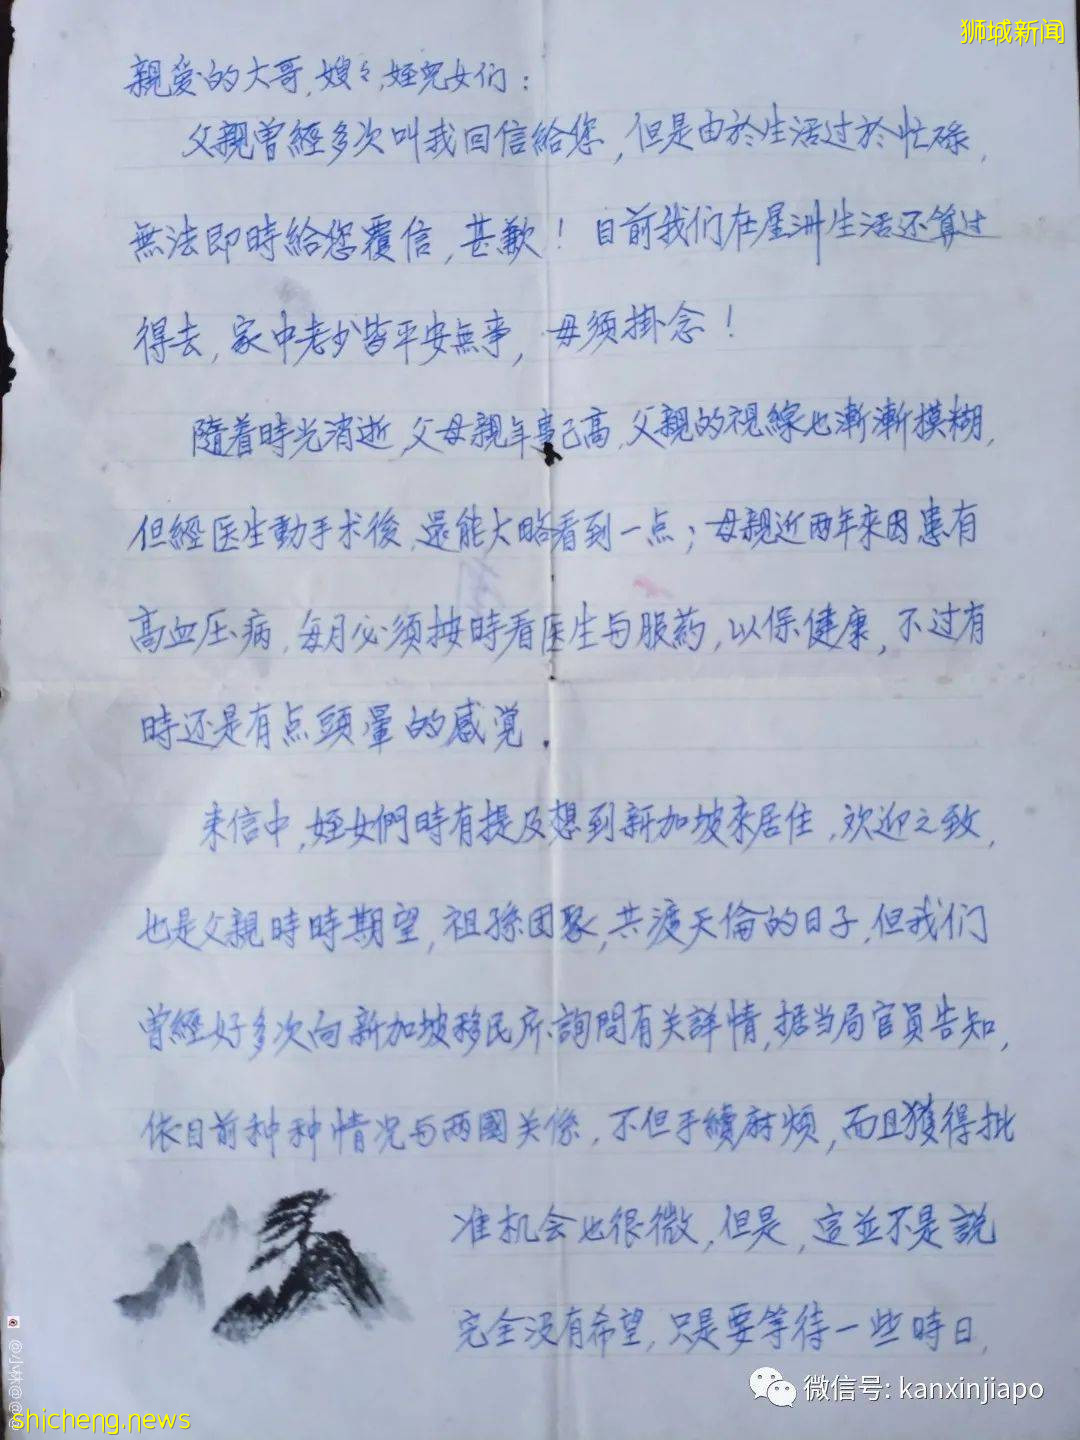 狮城新闻
親爱的大哥,嫂々,姪兒女们：
父親曾經多次叫我回信給您,但是由於生活过於忙碌,
無法即時給您覆信,甚歉！目前我们在星洲生活还算过
得去,家中老少皆平安無事,毋须掛念！
隨着時光消逝,父母親年事已高,父親的視線也漸漸模糊,
但經医生動手术後,還能大略看到一点；母親近两年來因患有
高血压病,每月必须按時看医生与服药,以保健康,不过有
時还是有点頭暈的感覚.
来信中,姪女們時有提及想到新加坡來居住,欢迎之致,
也是父親時時期望,祖孫团聚,共渡天倫的日子,但我们
曾經好多次向新加坡移民所詢問有关詳情,据当局官員告知,
依目前种种情况与两國关係,不但手續麻烦,而且獲得批
准机会也很微,但是,這並不是説
完全没有希望,只是要等待一些時日,
微信号: kanxinjiapo
@小林@@@
shicheng.news